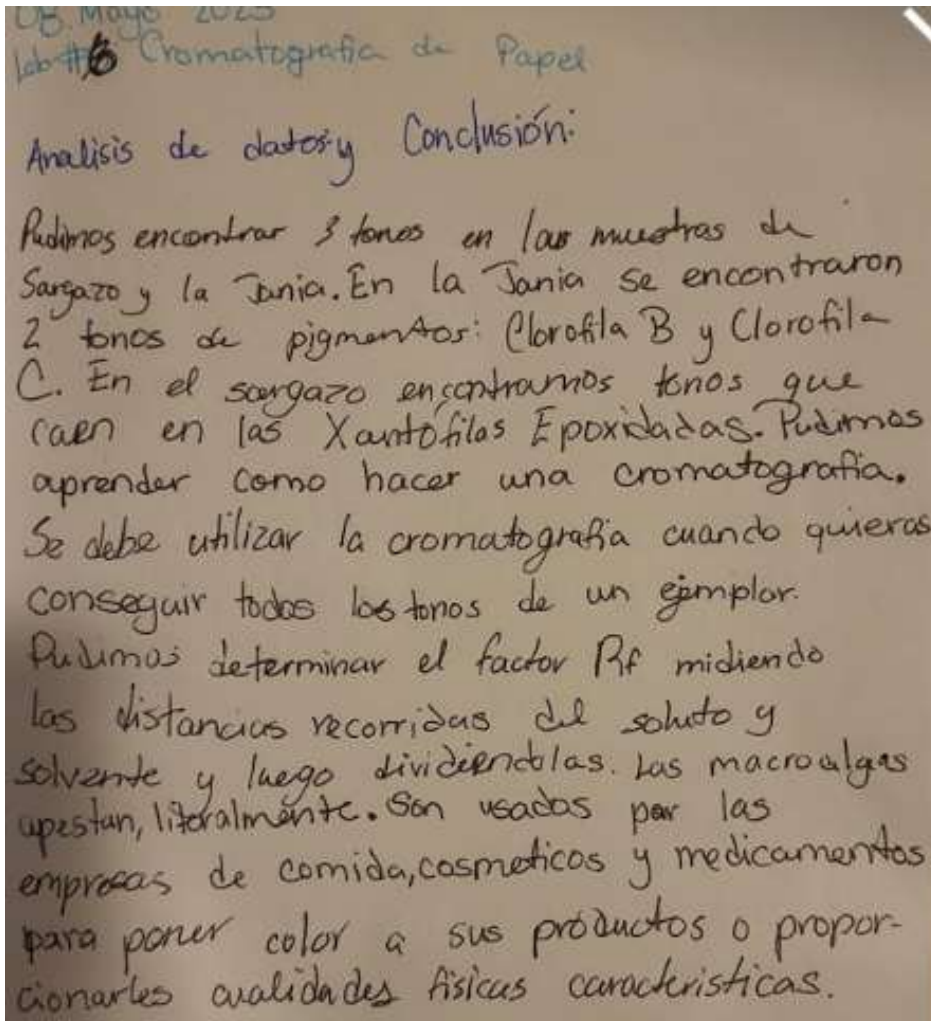 08 Mayo 2023
Lab #6 Cromatografia de Papel
Analisis de datos y Conclusión:
Pudimos encontrar 3 tonos en las muestras de
Sargazo y la Jania. En la Jania se encontraron
2 tonos de pigmentos: Clorofila B y Clorofila
C. En el sargazo encontramos tonos que
caen en las Xantófilas Epoxidadas. Pudimos
aprender como hacer una cromatografia.
Se debe utilizar la cromatografia cuando quieras
conseguir todos los tonos de un ejemplar.
Pudimos determinar el factor Rf midiendo
las distancias recorridas del soluto y
solvente y luego dividiendolas. Las macroalgas
apestan, literalmente. Son usadas por las
empresas de comida, cosmeticos y medicamentos
para poner color a sus productos o propor-
cionarles cualidades fisicas caracteristicas.